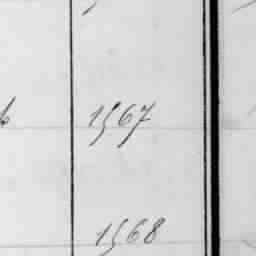 1567
1568